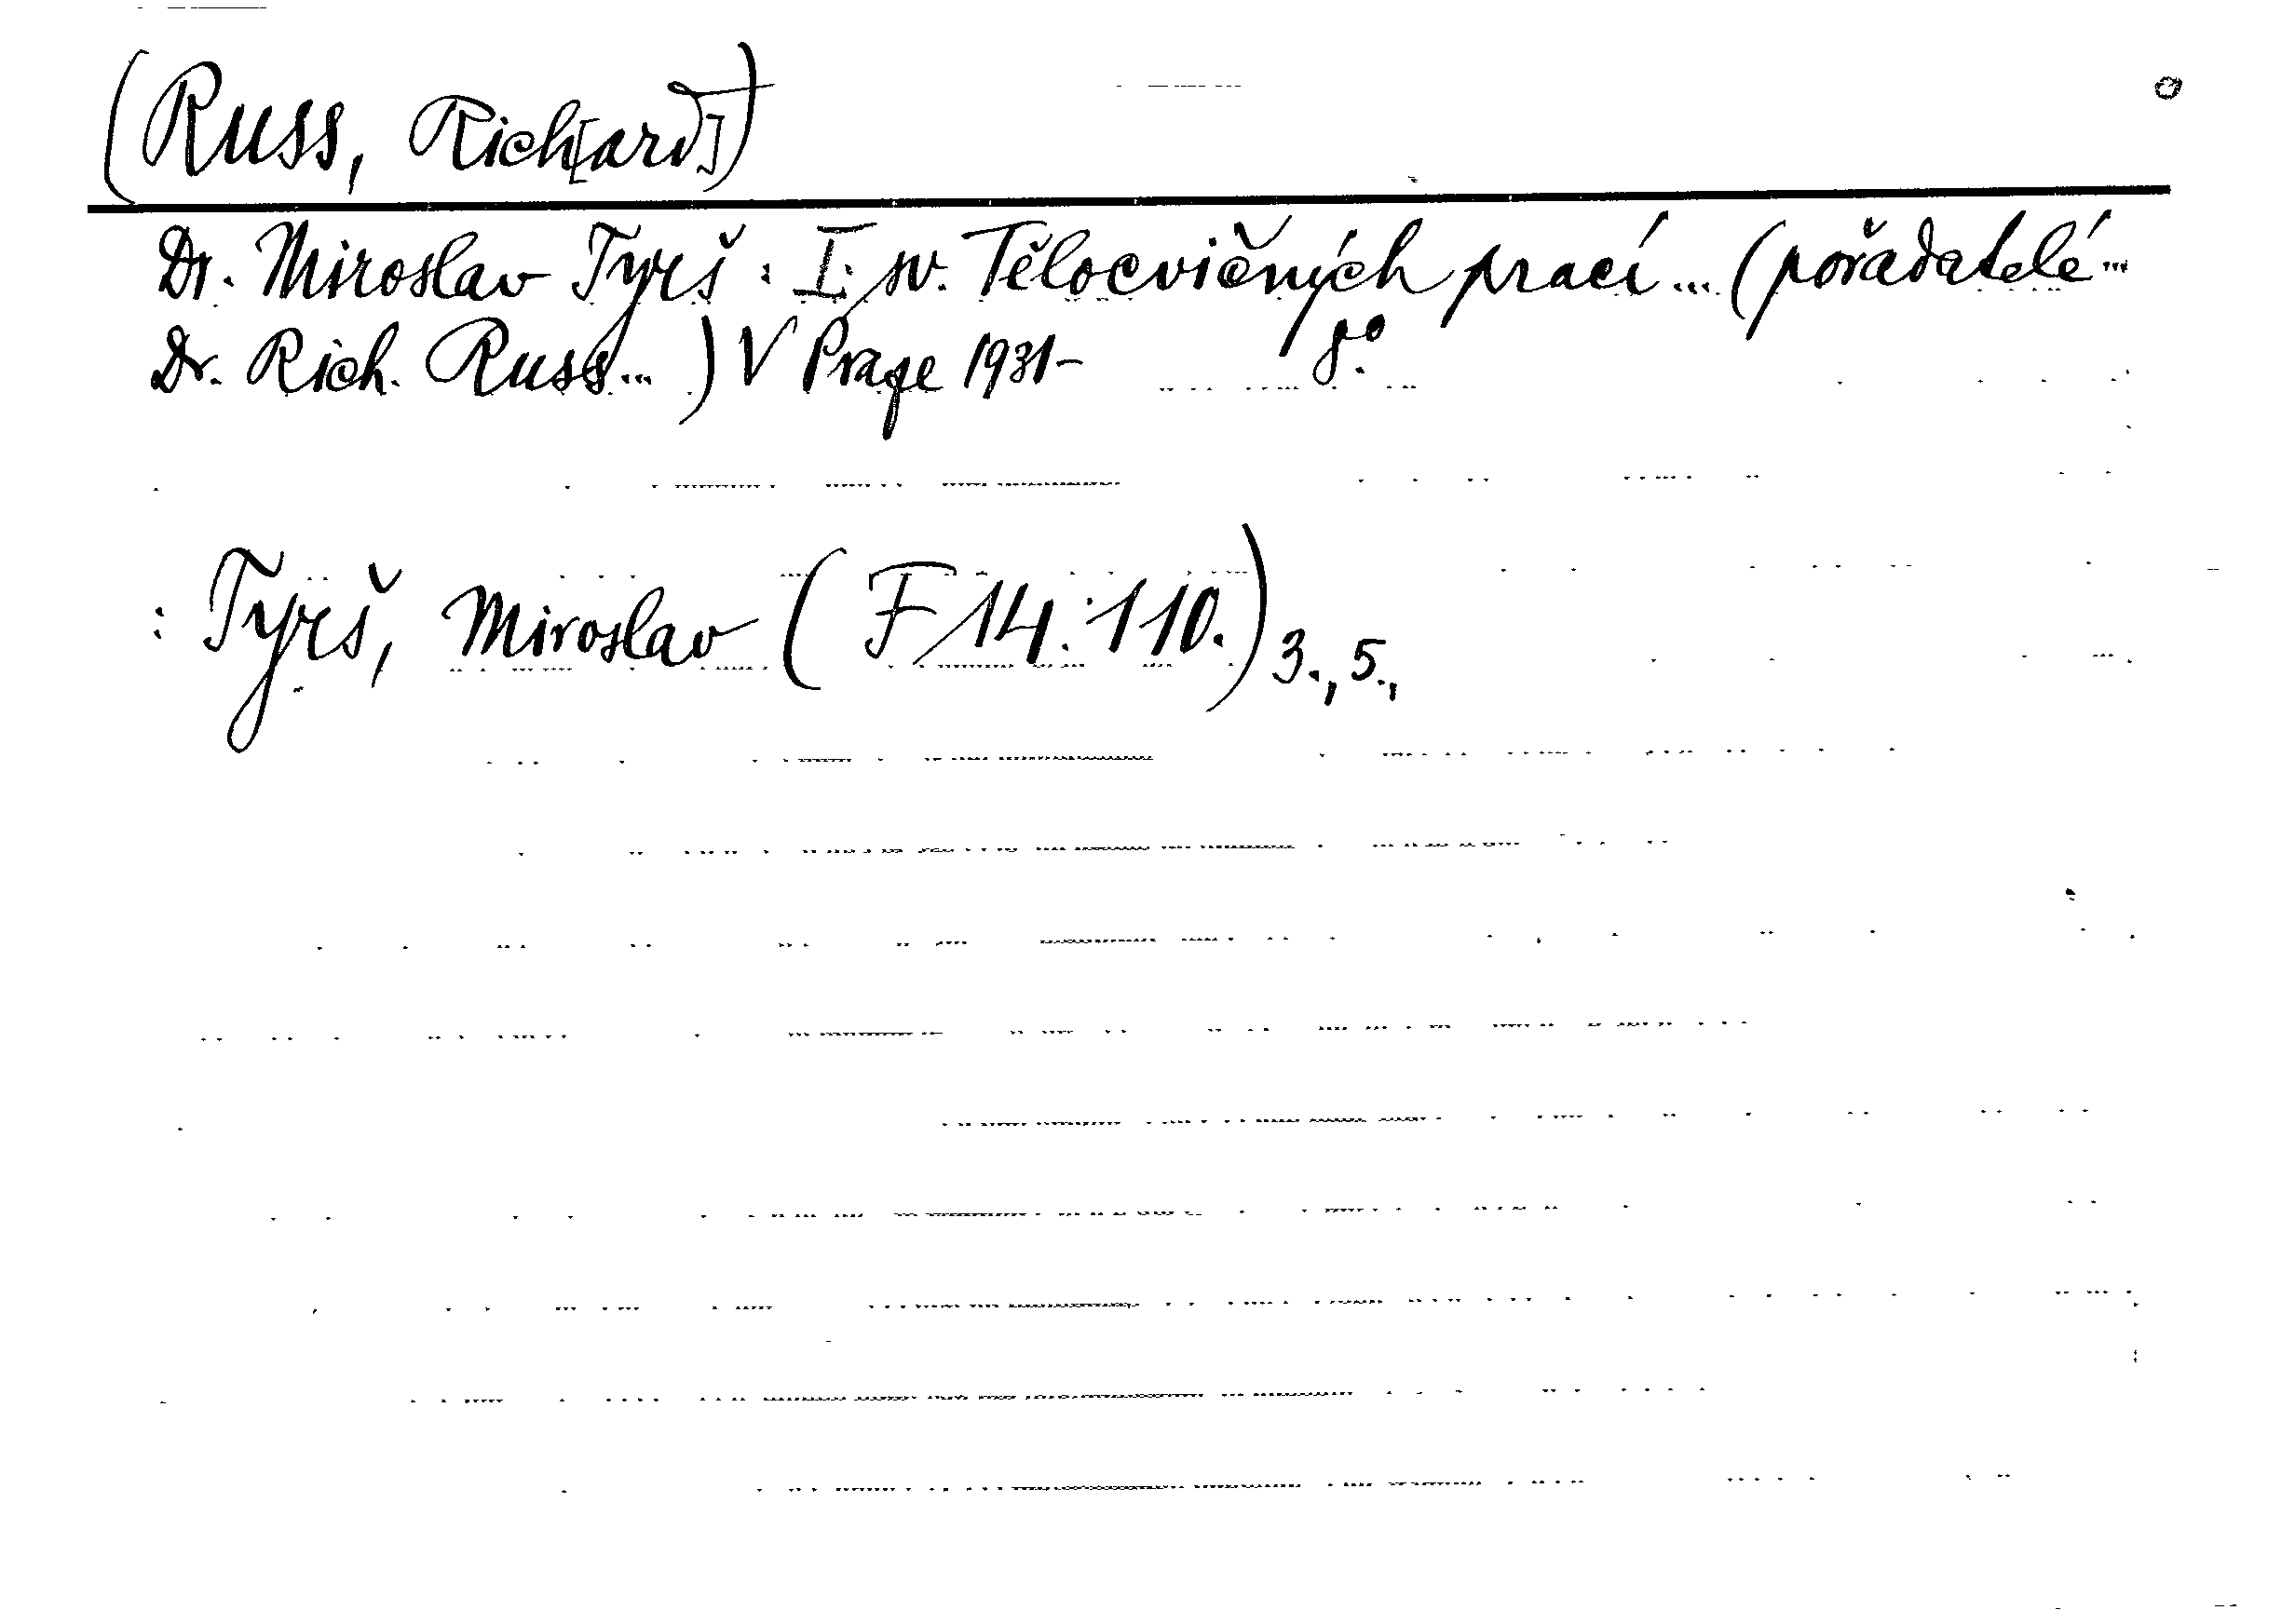 (Russ, Rich[ard])
Dr. Miroslav Tyrš: I. sv. Tělocvičných prací ... (pořadatelé ...
Dr. Rich. Russ ... ) V Praze 1931- 8°.
: Tyrš, Miroslav (F 14:110.) 3., 5.,